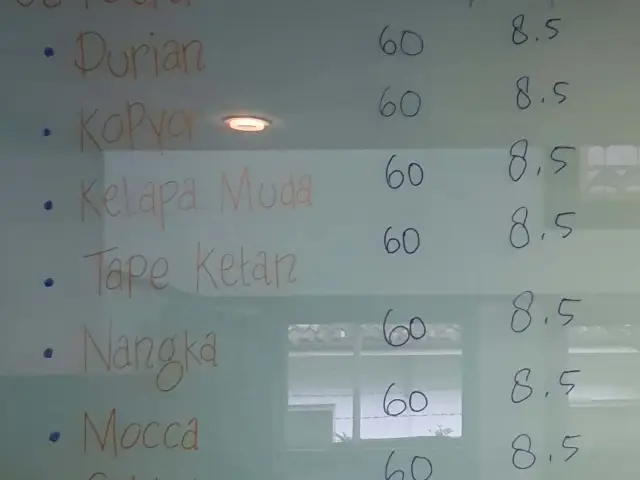 • Durian 60 8.5
• Kopyor 60 8.5
• Kelapa Muda 60 8.5
• Tape Ketan 60 8.5
• Nangka 60 8.5
• Mocca 60 8.5
60 8.5